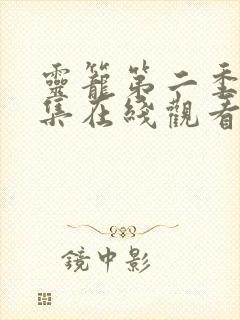 靈籠第二季
集在綫觀看
鏡中影